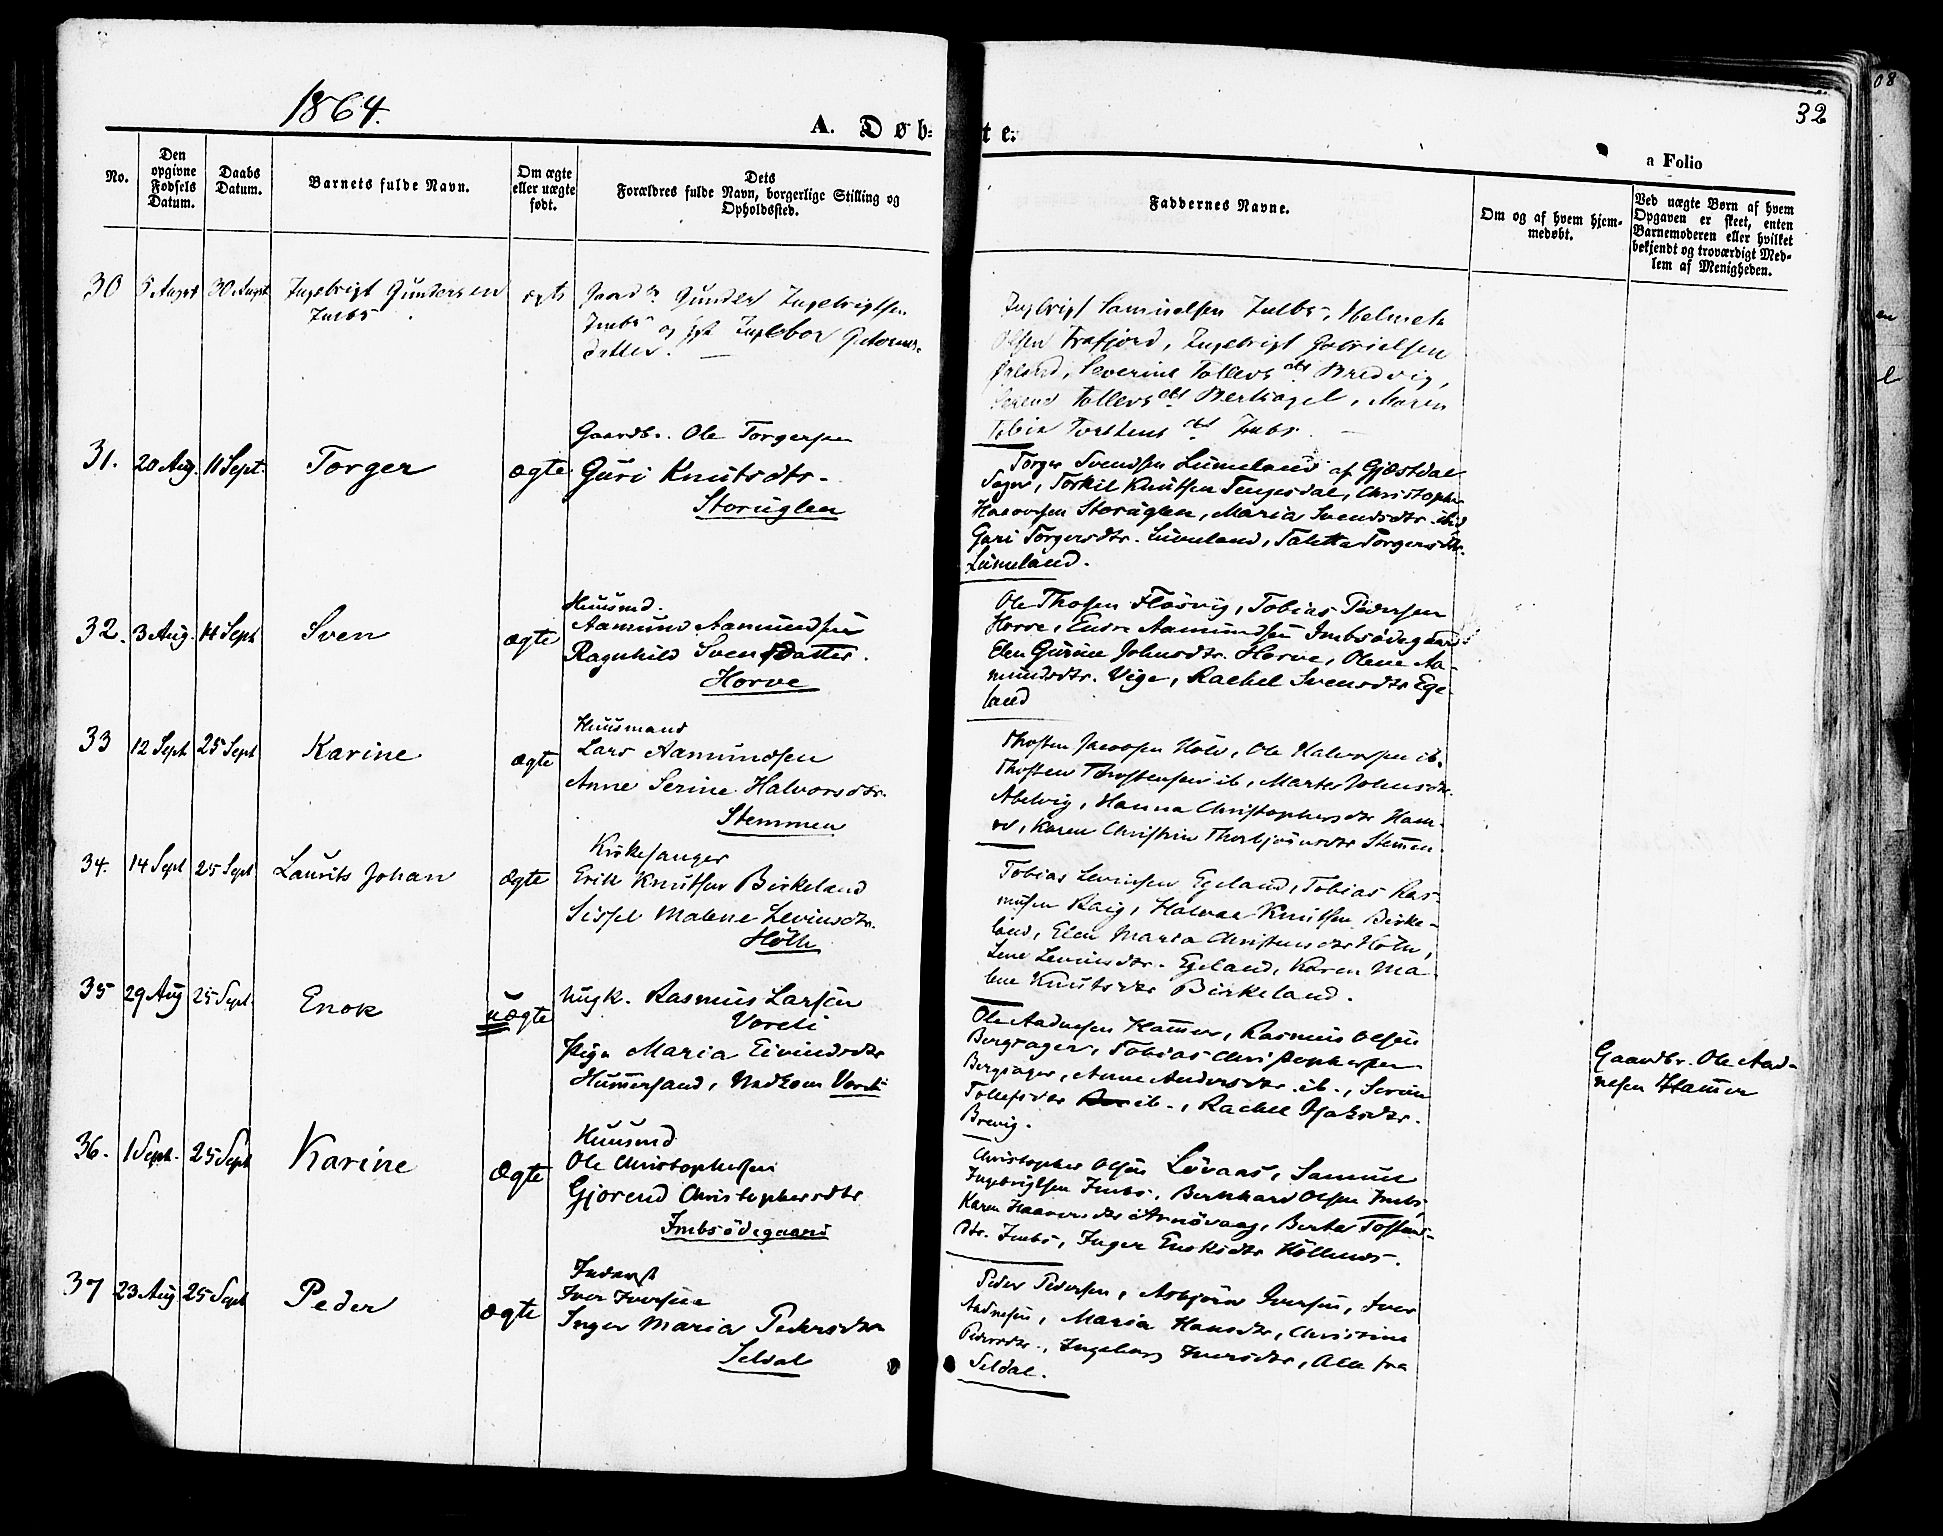 1864.
A. Døb-
te.
32
08
a Folio
No.
Den opgivne Fødsels Datum.
Daabs Datum.
Barnets fulde Navn.
Om ægte eller uægte født.
Dets
Forældres fulde Navn, borgerlige Stilling og
Opholdssted.
Faddernes Navne.
Om og af hvem hjem-
medøbt.
Ved uægte Børn af hvem
Opgaven er skeet, enten
Barnemoderen eller hvilket
bekjendt og troværdigt Med-
lem af Menigheden.
30 5 August 30 August Ingebrigt Gundersen
Imbs
ægte
Gaardb. Gunder Ingebrigtsen
Imbs og
datter.
Ingebrigt Samuelsen Imbs, Helmik
Olsen Frafjord, Ingebrigt Gabrielsen
Severine Tollevs dtr Bredvig,
Serene Tollevs dtr Bersagel, Maren
Torstens dtr Imbs.
31. 20 Aug. 11 Sept. Torger ægte
Gaardb. Ole Torgersen
Guri Knutsdtr.
Storuglen
Torger Svendsen Lümeland af Gjæstdal
Sogn, Torkil Knutsen Tengesdal, Christopher
Haavorsen Storuglen, Maria Svendsdtr. ibid
Guri Torgersdtr. Lümeland, Taletta Torgersdtr.
Lümeland.
32. 3 Aug. 14 Sept Sven ægte
Huusmd.
Aamund Aamundsen
Ragnhild Svensdatter.
Horve
Ole Thosen Flosvig, Tobias Pedersen
Horve, Endre Aamundsen Imbsødegaard
Elen Gurine Johnsdtr. Horve, Olene Aa-
mundsdtr. Vige, Rachel Svensdtr Ege-
land
33 12 Sept 25 Sept Karine ægte
Huusmand
Lars Aamundsen
Anne Serine Halvorsdtr.
Stemmen
Thosten Jacobsen Hole, Ole Halvorsen ib.
Thosten Thostensen ib, Marte Johnsdtr.
Abelvig, Hanna Christophersdtr Ham-
re, Karen Christine Thorbjörnsdtr Stemmen.
34. 14 Sept 25 Sept Laurits Johan Ægte
Kirkesanger
Erik Knutsen Birkeland
Sissel Malene Levinsdtr.
Hölle
Tobias Levinsen Egeland, Tobias Ras-
musen Raig, Halvor Knutsen Birke-
land, Elen Maria Christensdtr Höle,
Lene Levinsdtr. Egeland, Karen Ma-
lene Knutsdtr Birkeland.
35 29 Aug 25 Sept. Enok uægte
Ungk. Rasmus Larsen
Voreli
Pige Maria Eivindsdtr
Hummersand, Vedkom Voreli
Ole Aadnesen Hammer, Rasmus Olsen
Bergsager, Tobias Christophersen
Bergsager, Anne Andersdtr ib., Serine
Tollefsdtr ib., Rachel
Brevig.
Gaardbr. Ole Aad-
nesen Hammer
36. 1 Sept. 25 Sept Karine Ægte
Huusmd
Ole Christophersen
Gjorend Christophersdtr
Imbsödegaard
Christopher Olsen Lövaas, Samuel
Ingebrigtsen Imbs, Bernhard Olsen Imbs,
Karen Haavorsdtr Arnövaag, Berte Tostens-
dtr. Imbs, Inger Enoksdtr Höllesli.
37 23 Aug 25 Sept Peder ægte
Inderst
Iver Iversen
Inger Maria Pedersdtr
Seldal
Peder Pedersen, Asbjörn Iversen, Iver
Aadnesen, Maria Hansdtr, Christine
Pedersdtr., Ingeborg Iversdtr, Alle fra
Seldal.